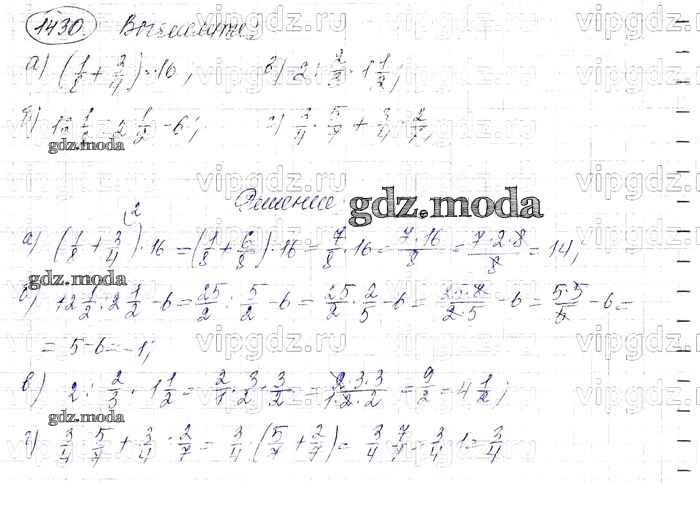 1430. Вычислите:
а) (1/8 + 3/4) · 16; в) 2 : 2/3 · 1 1/2;
б) 12 1/2 : 2 1/2 - 6; г) 3/4 · 5/7 + 3/4 · 2/7;
gdz.moda
Решение:
gdz.moda
а) (1/8 + 3/4) · 16 = (1/8 + 6/8) · 16 = 7/8 · 16 = 7·16/8 = 7·2·8/8 = 14;
gdz.moda
б) 12 1/2 : 2 1/2 - 6 = 25/2 : 5/2 - 6 = 25/2 · 2/5 - 6 = 25·2/2·5 - 6 = 5·5/5 - 6 =
= 5-6 = -1;
в) 2 : 2/3 · 1 1/2 = 2/1 · 3/2 · 3/2 = 2·3·3/1·2·2 = 9/2 = 4 1/2;
gdz.moda
г) 3/4 · 5/7 + 3/4 · 2/7 = 3/4 · (5/7 + 2/7) = 3/4 · 7/7 = 3/4 · 1 = 3/4
vipgdz.ru